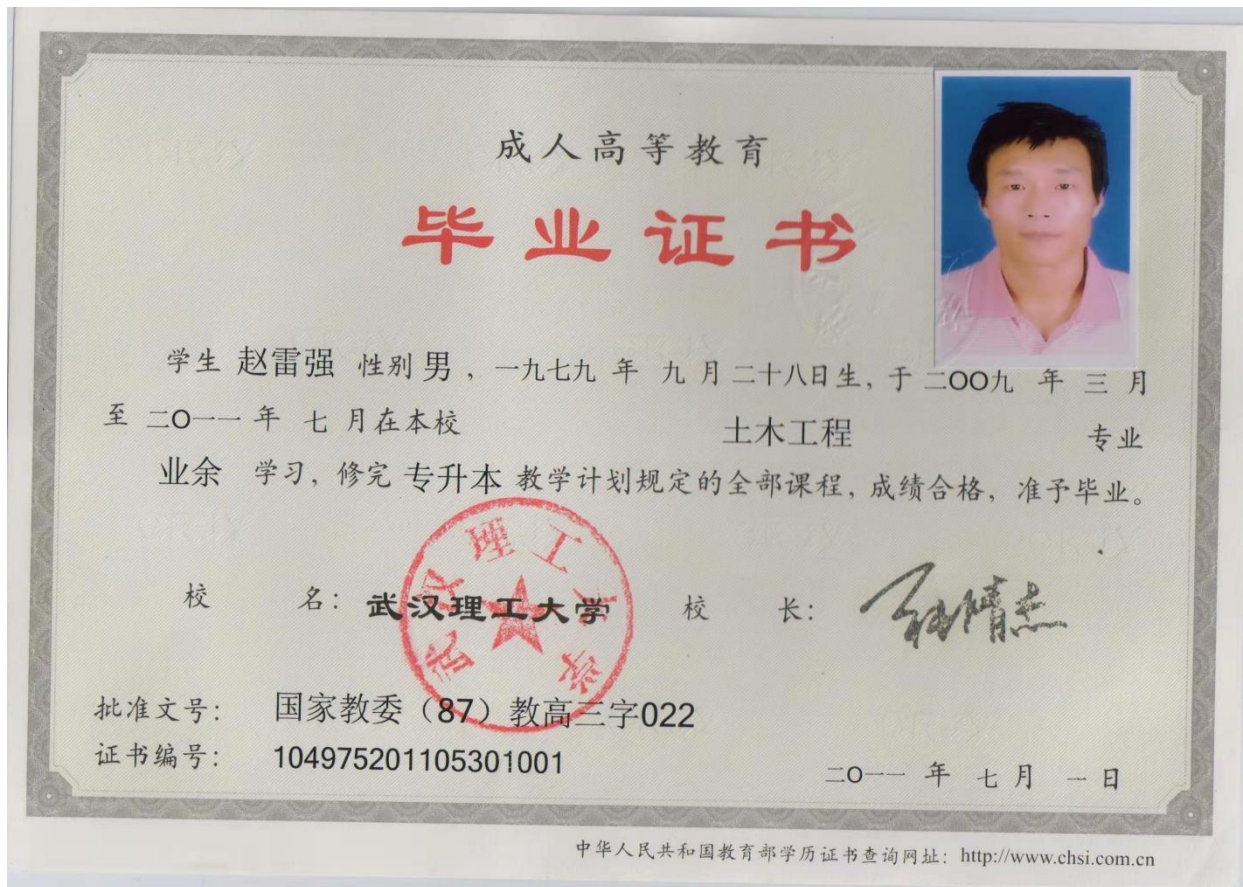 成人高等教育
毕业证书
学生 赵雷强 性别 男 ，一九七九 年 九 月 二十八日生，于 二〇〇九 年 三 月
至 二〇一一 年 七 月在本校 土木工程 专业
业余 学习，修完 专升本 教学计划规定的全部课程，成绩合格，准予毕业。
武汉理工大学
校 名： 武汉理工大学 校 长：
批准文号： 国家教委（87）教高三字022
证书编号： 104975201105301001
二〇一一 年 七 月 一 日
中华人民共和国教育部学历证书查询网址：http://www.chsi.com.cn